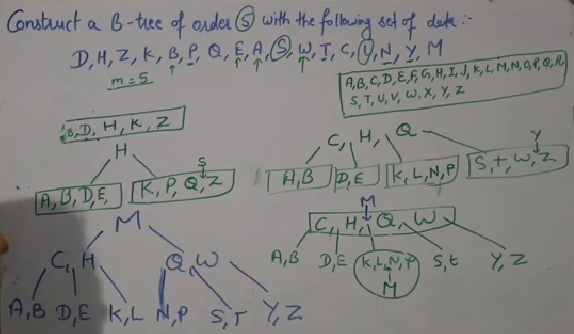 Construct a B-tree of order 5 with the following set of data:-
D, H, Z, K, B, P, Q, E, A, S, W, T, C, L, N, Y, M
m=5
A, B, C, D, E, F, G, H, I, J, K, L, M, N, O, P, Q, R,
S, T, U, V, W, X, Y, Z
B, D, H, K, Z
H
S
A, B, D, E,
K, P, Q, Z
C, H, Q
Y
A, B
D, E
K, L, N, P
S, T, W, Z
M
C, H, Q, W
A, B
D, E
K, L, N, P
S, t
Y, Z
M
M
C, H
Q, W
A, B
D, E
K, L
N, P
S, T
Y, Z